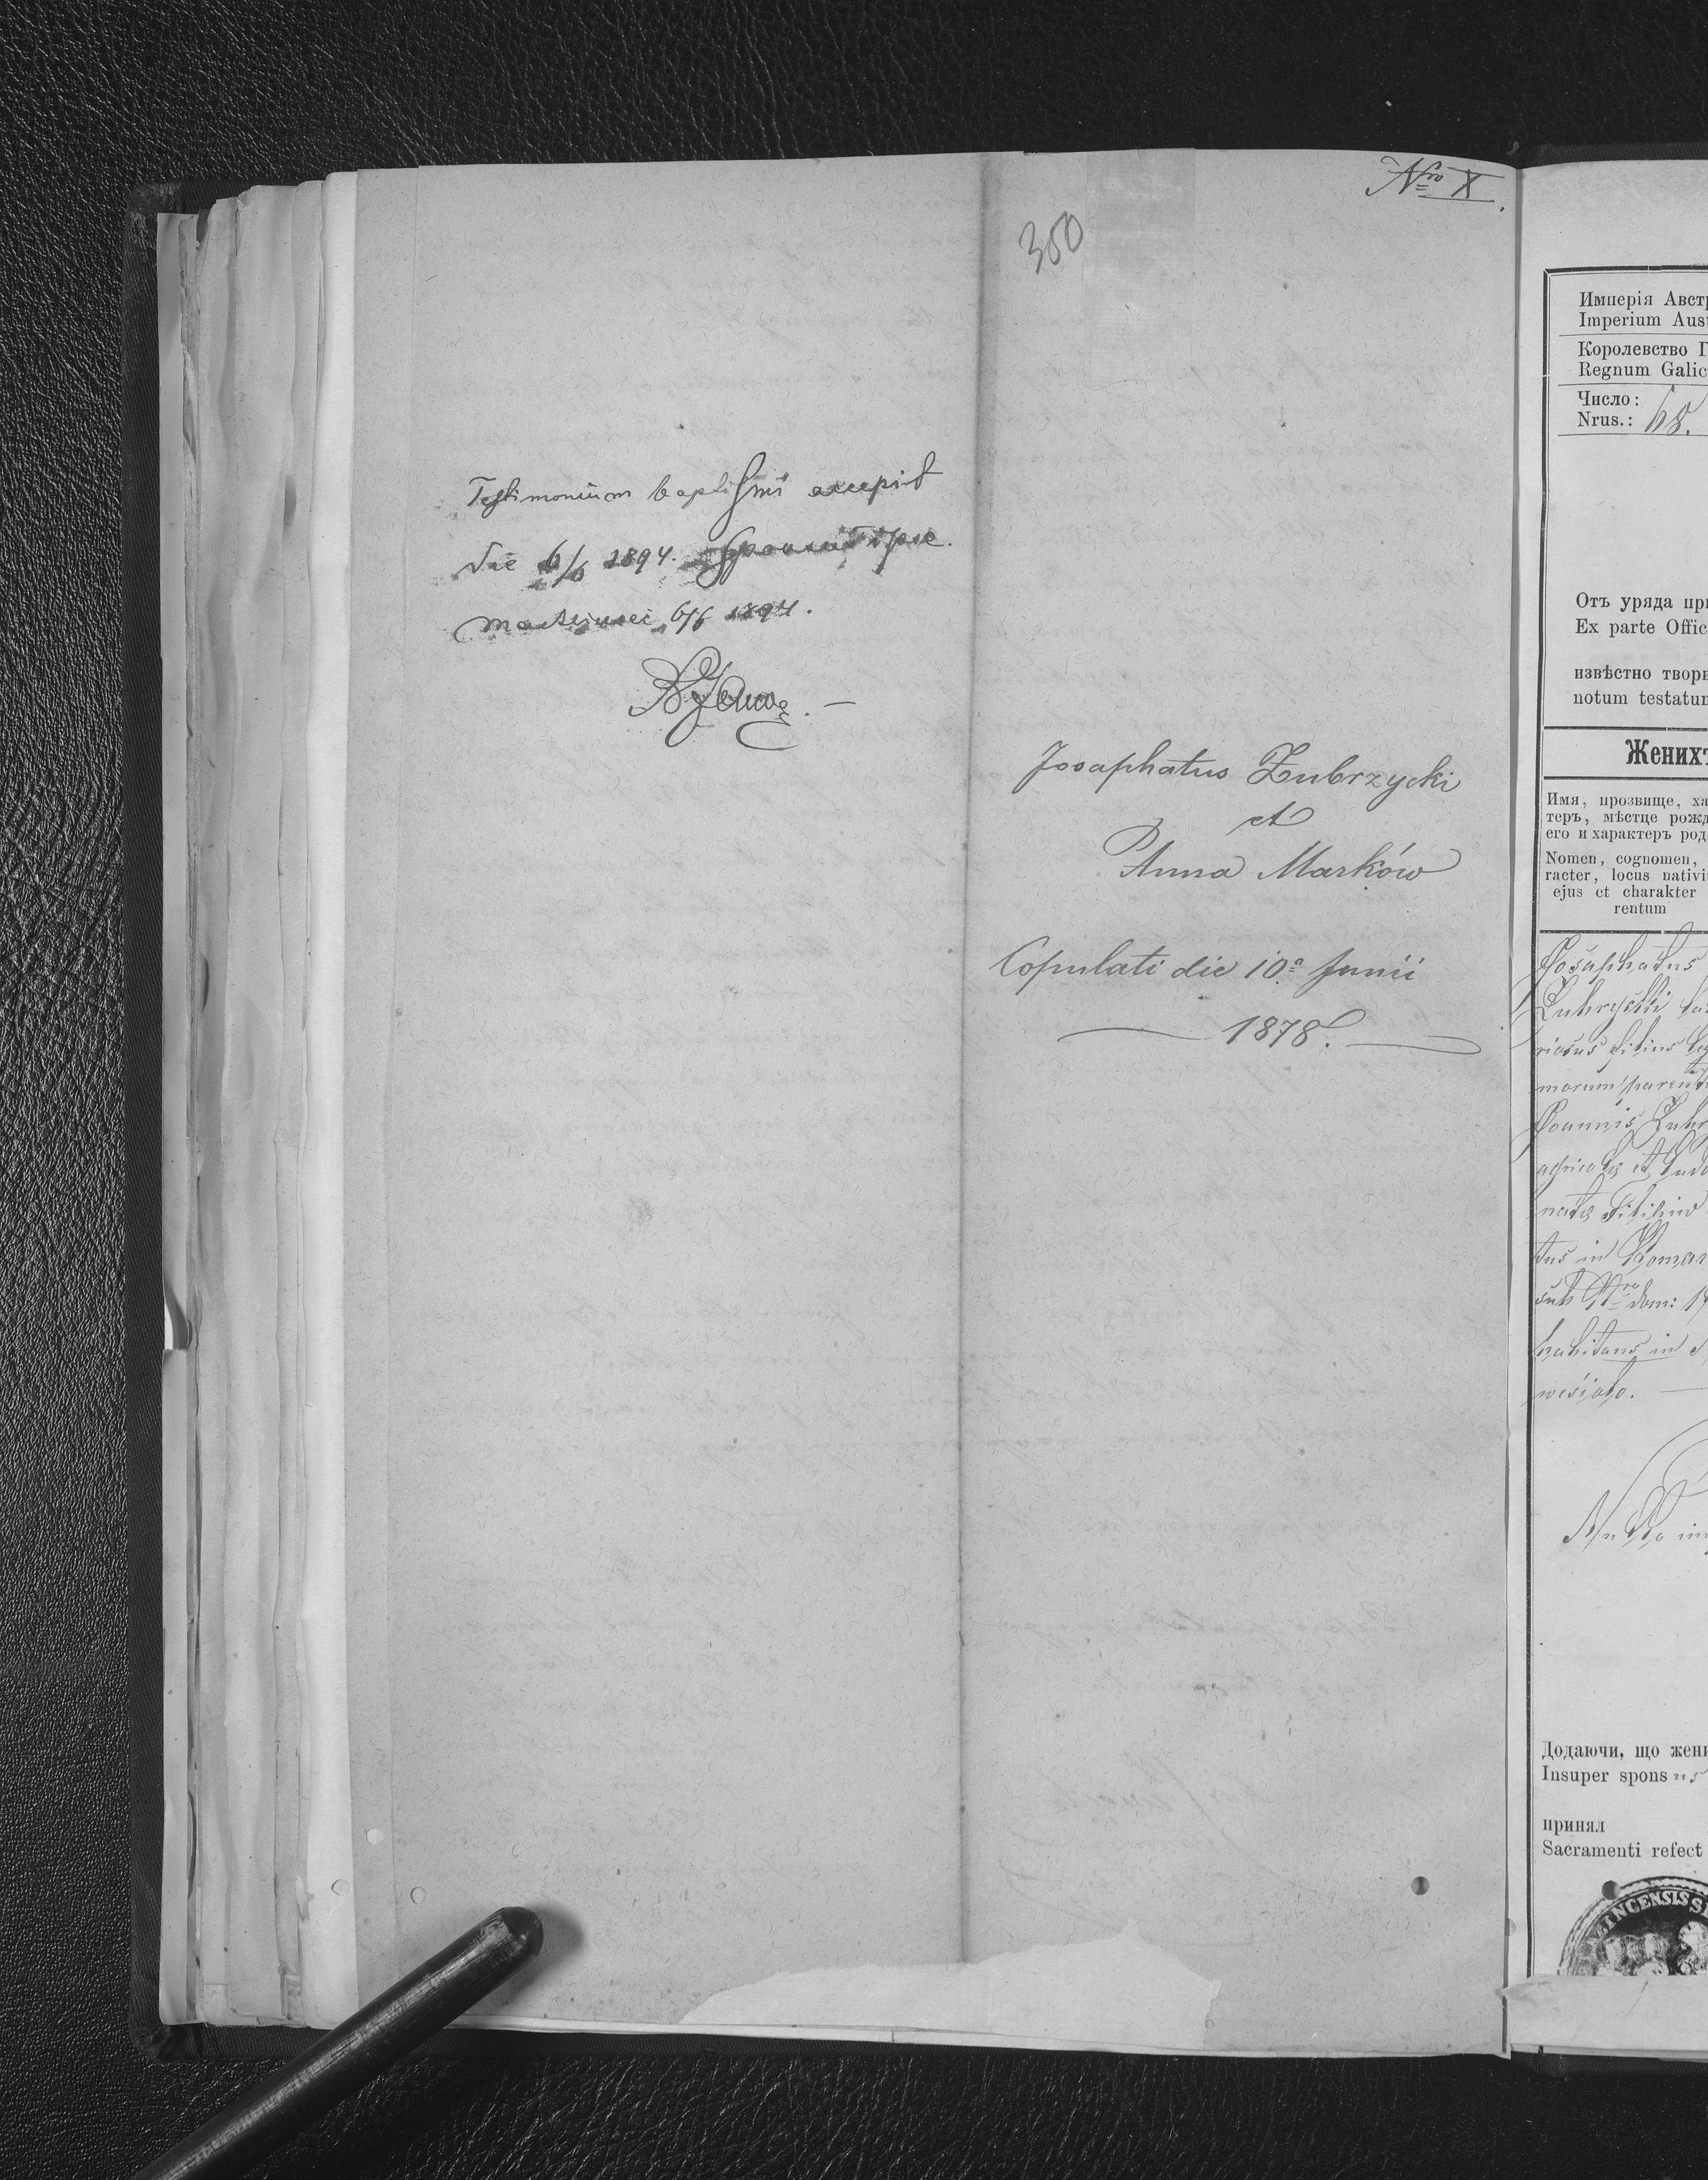 Nro X.
350
Testimonium baptismi accepit
die 6/6 1894.
6/6 1894.
Josaphatus Zubrzycki
et
Anna Marków
Copulati die 10a Junii
1878.
Имперія Австр
Imperium Aust
Королевство Г
Regnum Galic
Число:
Nrus.: 68.
Отъ уряда при
Ex parte Offic
извѣстно твори
notum testatum
Женихъ
Имя, прозвище, ха
теръ, мѣстце рожд
его и характеръ род
Nomen, cognomen,
racter, locus nativi
ejus et charakter
rentum
Josaphatus
filius
morum parent
Joannis Zubr
agricola et
tus in Roman
sub Nro dom: 1
habitans in
Додаючи, що жени
Insuper spons us
принял
Sacramenti refect
INCENSIS S